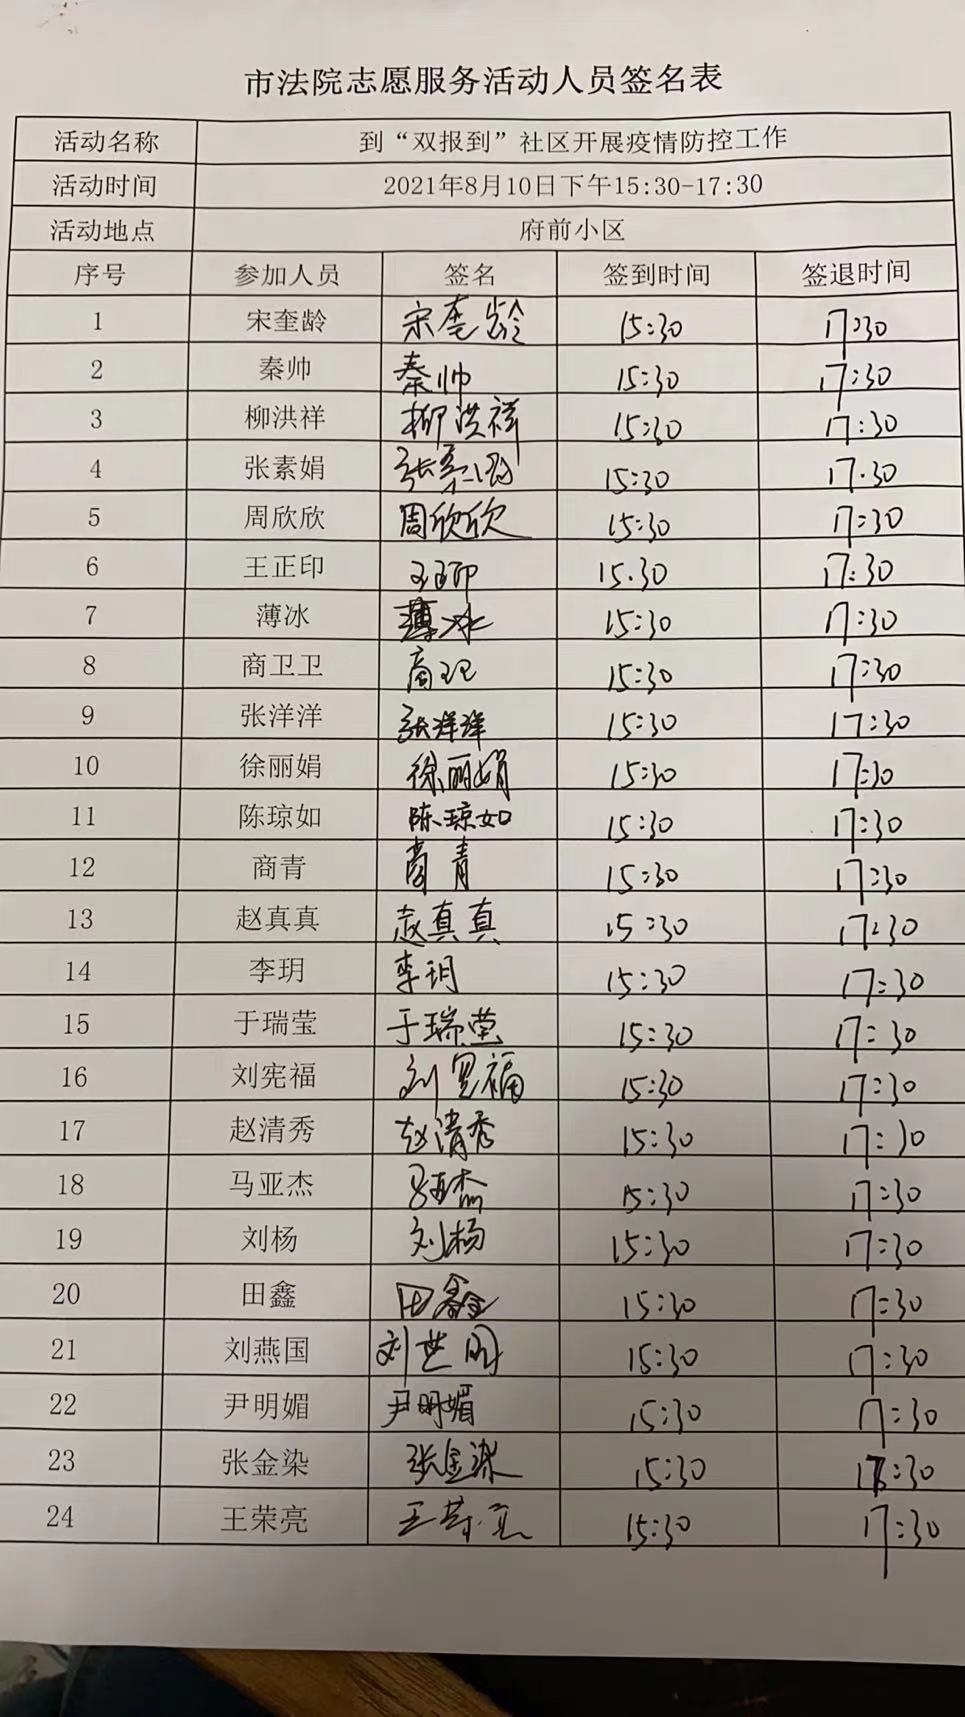 市法院志愿服务活动人员签名表
活动名称 到“双报到”社区开展疫情防控工作
活动时间 2021年8月10日下午15:30-17:30
活动地点 府前小区
序号 参加人员 签名 签到时间 签退时间
1 宋奎龄 宋奎龄 15:30 17:30
2 秦帅 秦帅 15:30 17:30
3 柳洪祥 柳洪祥 15:30 17:30
4 张素娟 张素娟 15:30 17.30
5 周欣欣 周欣欣 15:30 17:30
6 王正印 王正印 15.30 17:30
7 薄冰 薄冰 15:30 17:30
8 商卫卫 商卫卫 15:30 17:30
9 张洋洋 张洋洋 15:30 17:30
10 徐丽娟 徐丽娟 15:30 17:30
11 陈琼如 陈琼如 15:30 17:30
12 商青 商青 15:30 17:30
13 赵真真 赵真真 15:30 17:30
14 李玥 李玥 15:30 17:30
15 于瑞莹 于瑞莹 15:30 17:30
16 刘宪福 刘宪福 15:30 17:30
17 赵清秀 赵清秀 15:30 17:30
18 马亚杰 马亚杰 15:30 17:30
19 刘杨 刘杨 15:30 17:30
20 田鑫 田鑫 15:30 17:30
21 刘燕国 刘燕国 15:30 17:30
22 尹明媚 尹明媚 15:30 17:30
23 张金染 张金染 15:30 17:30
24 王荣亮 王荣亮 15:30 17:30